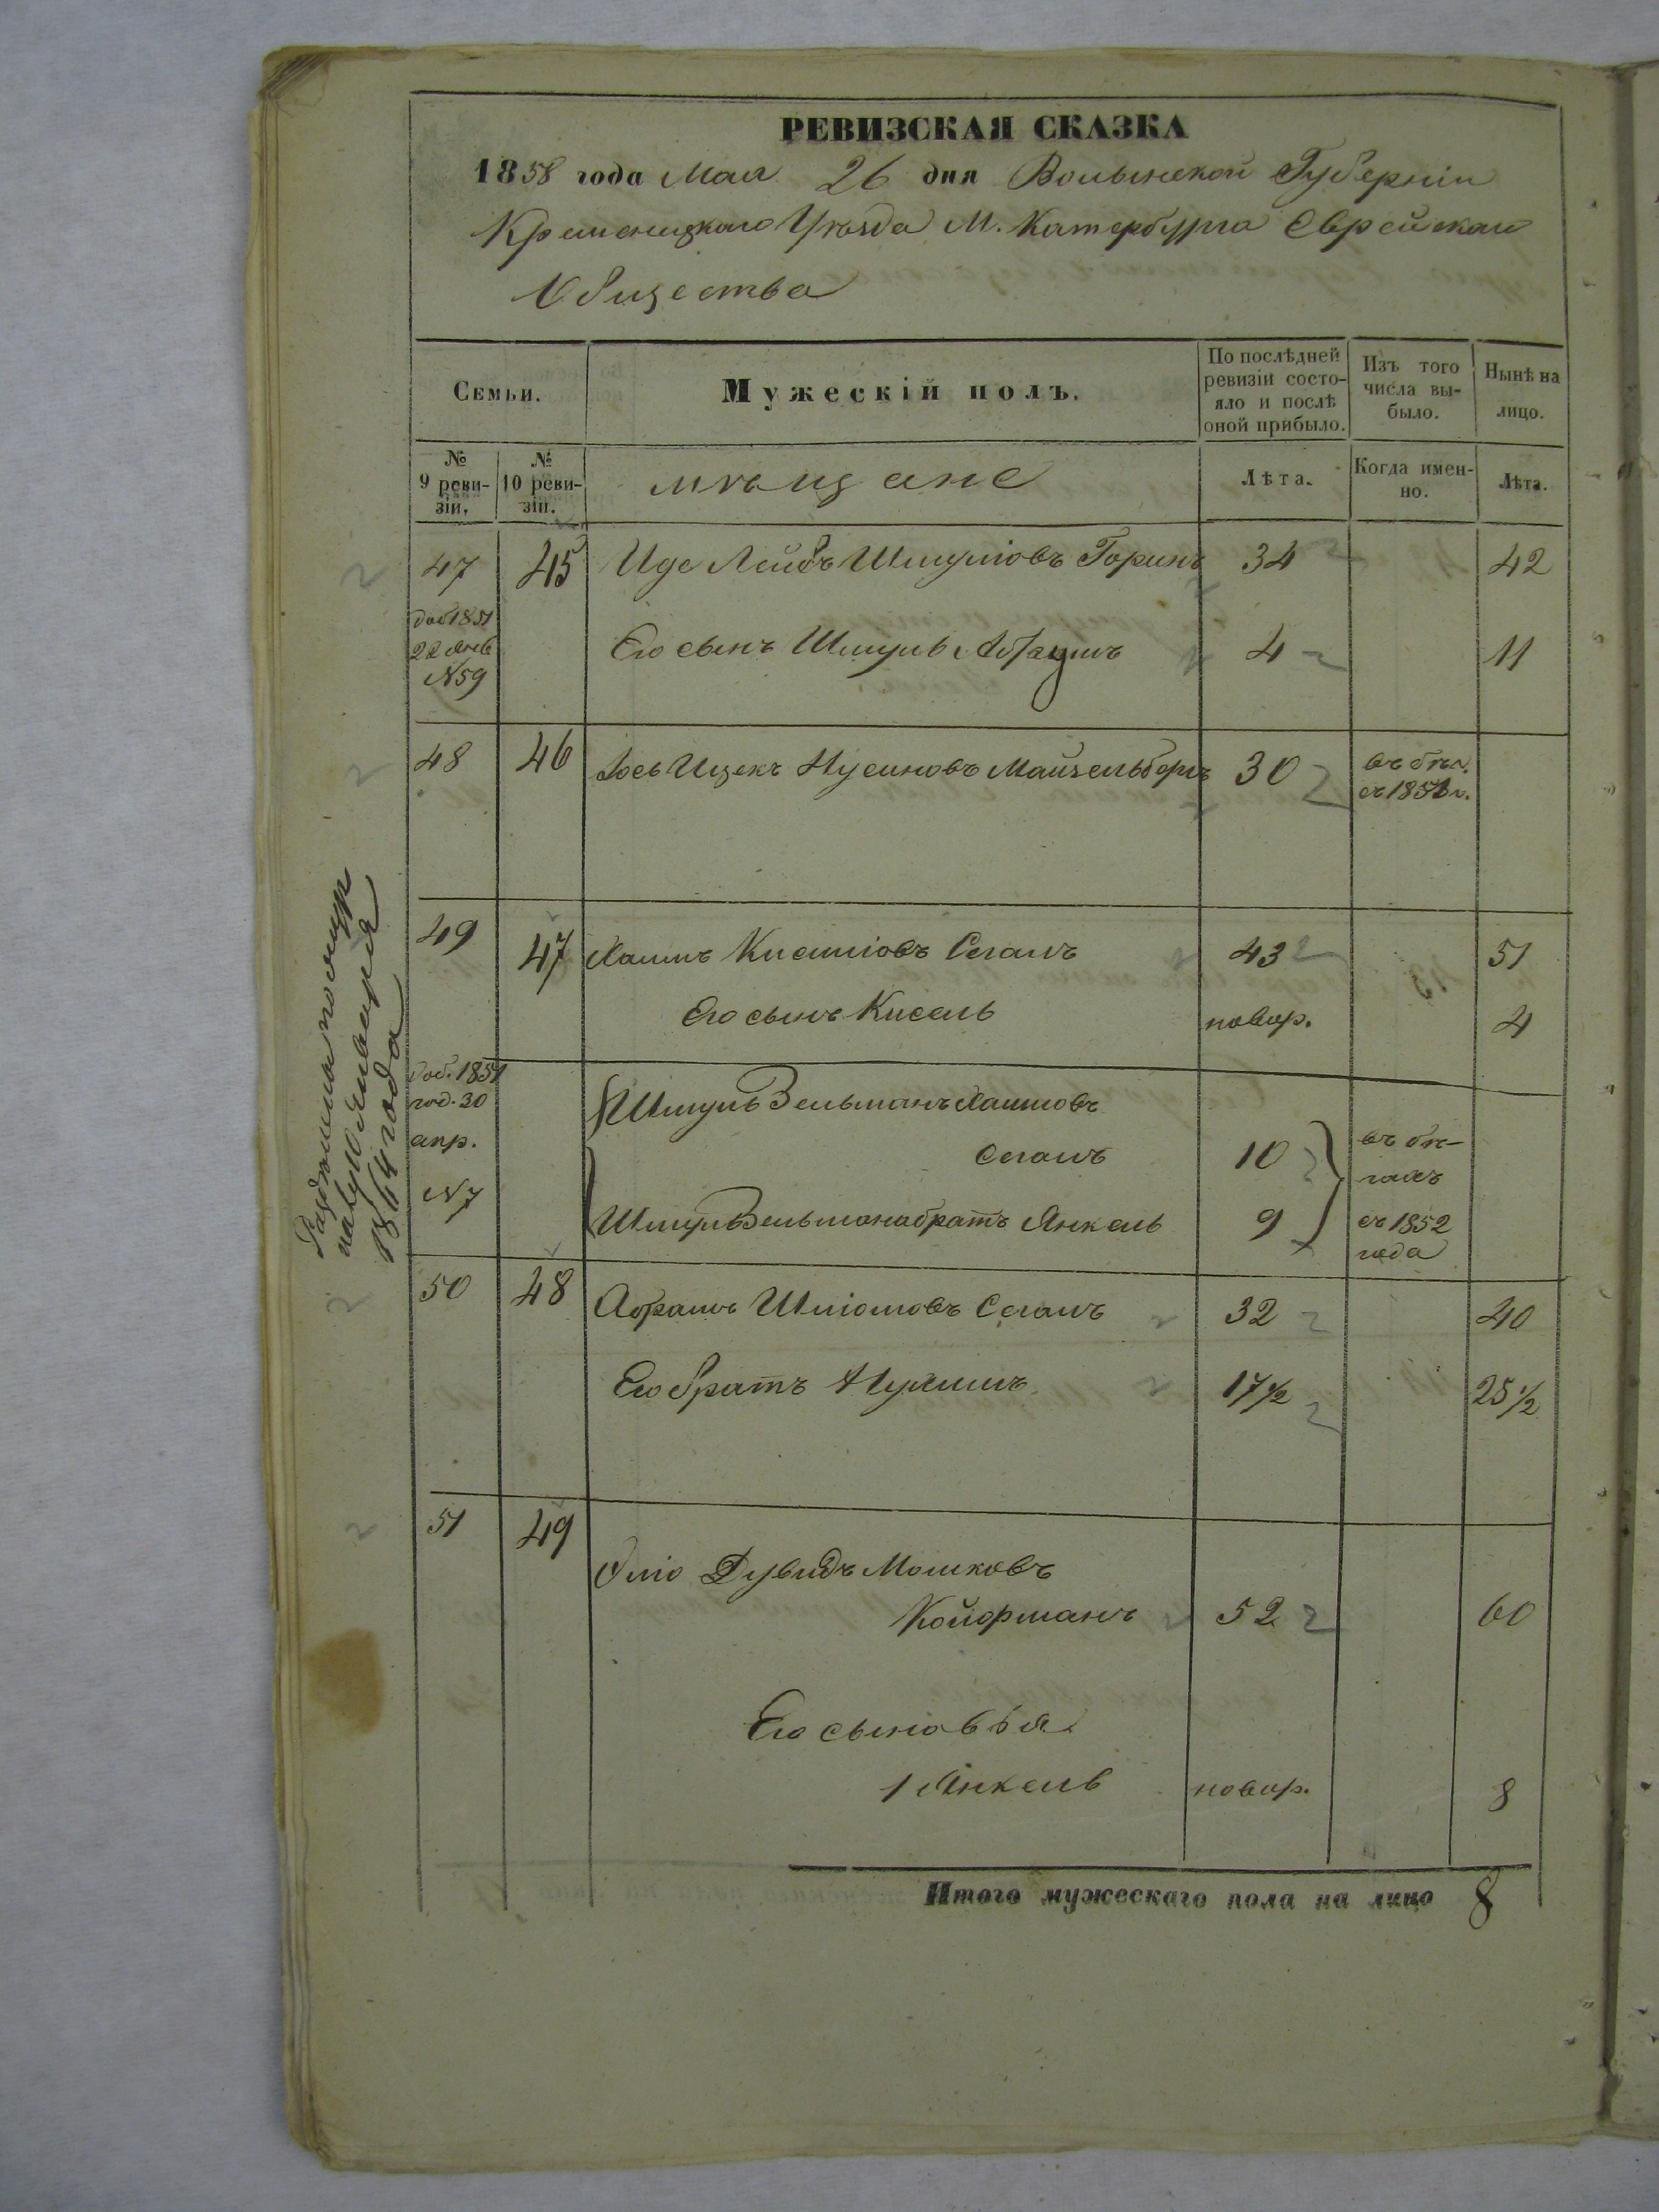 РЕВИЗСКАЯ СКАЗКА
1858 года Мая 26 дня Волынской Губерніи
Кременецкаго Уѣзда М. Катербурга Еврейскаго
Общества
Семьи.
Мужескій полъ.
По послѣдней ревизіи состояло и послѣ оной прибыло.
Изъ того числа выбыло.
Нынѣ на лицо.
№ 9 ревизіи.
№ 10 ревизіи.
мѣщане
Лѣта.
Когда именно.
Лѣта.
47 45 Иде Лейбъ Шмуліовъ Горинъ 34 42
доб 1851
22 Янв
N59
Его сынъ Шмуль Абрамъ 4 11
48 46 Іось Ицекъ Нусиновъ Майзельбергъ 30 въ бѣг. съ 1851 г.
49 47 Хаимъ Кисиліовъ Сегалъ 43 51
Его сынъ Кисель новор. 4
доб. 1851
год. 30
апр.
N7
Шмуль Зельманъ Хаимовъ
Сегалъ 10
Шмуль Зельмана братъ Янкель 9
въ бѣ-
гахъ
съ 1852
года
50 48 Абрамъ Шліомовъ Сегалъ 32 40
Его братъ Нухимъ 17½ 25½
51 49
Эліо Дувидъ Мошковъ
Койфманъ 52 60
Его сыновья
1 Янкель новор. 8
Итого мужескаго пола на лицо 8
1864 года